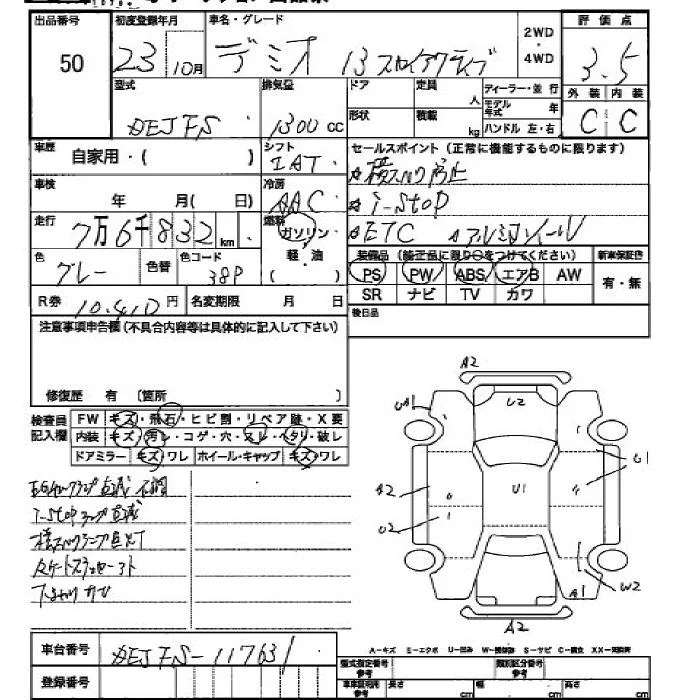 出品番号 初度登録年月 車名・グレード 2WD・4WD 評価点
50 23 10月 デミオ 13 スカイアクティブ 3.5
型式 排気量 ドア 定員 人 ディーラー・並行 外装 内装
DEJFS 1300 cc 形状 積載 kg モデル年式 年 C C
ハンドル 左・右
車歴 自家用・( ) シフト IAT セールスポイント(正常に機能するものに限ります)
横スベリ防止
車検 年 月( 日) 冷房 AAC
i-STOP
走行 7万6千832 km 燃料 ガソリン・軽・油 ( )
ETC アルミホイール
色 グレー 色替 色コード 38P
装備品 新車保証書
PS PW ABS エアB AW 有・無
SR ナビ TV カワ
R券 10.410円 名変期限 月 日
後日品
注意事項申告欄(不具合内容等は具体的に記入して下さい)
修復歴 有 (箇所 )
検査員記入欄 FW キズ・飛石・ヒビ割・リペア跡・X要
内装 キズ・汚レ・コゲ・穴・スレ・ヘタリ・破レ
ドアミラー キズ・ワレ ホイール・キャップ キズ・ワレ
i-STOPランプ点滅
A2
U2
A1
U1
A2
U1
U2
A1
W2
A2
A-キズ E-エクボ U-凹み S-サビ
車台番号 DEJFS-117631
登録番号
型式指定番号 参考 類別区分番号 参考
長さ cm 幅 cm 高さ cm